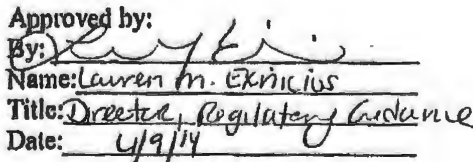 Approved by:
By:
Name: Lauren M. Eknicius
Title: Director, Regulatory Guidance
Date: 4/9/14